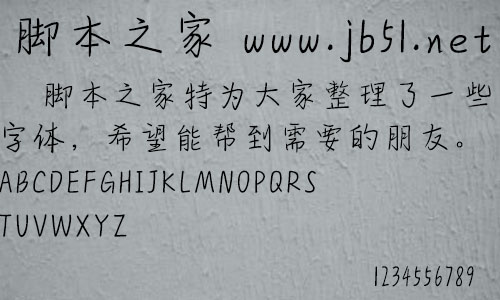 脚本之家 www.jb51.net
脚本之家特为大家整理了一些
字体，希望能帮到需要的朋友。
ABCDEFGHIJKLMNOPQRS
TUVWXYZ
1234556789